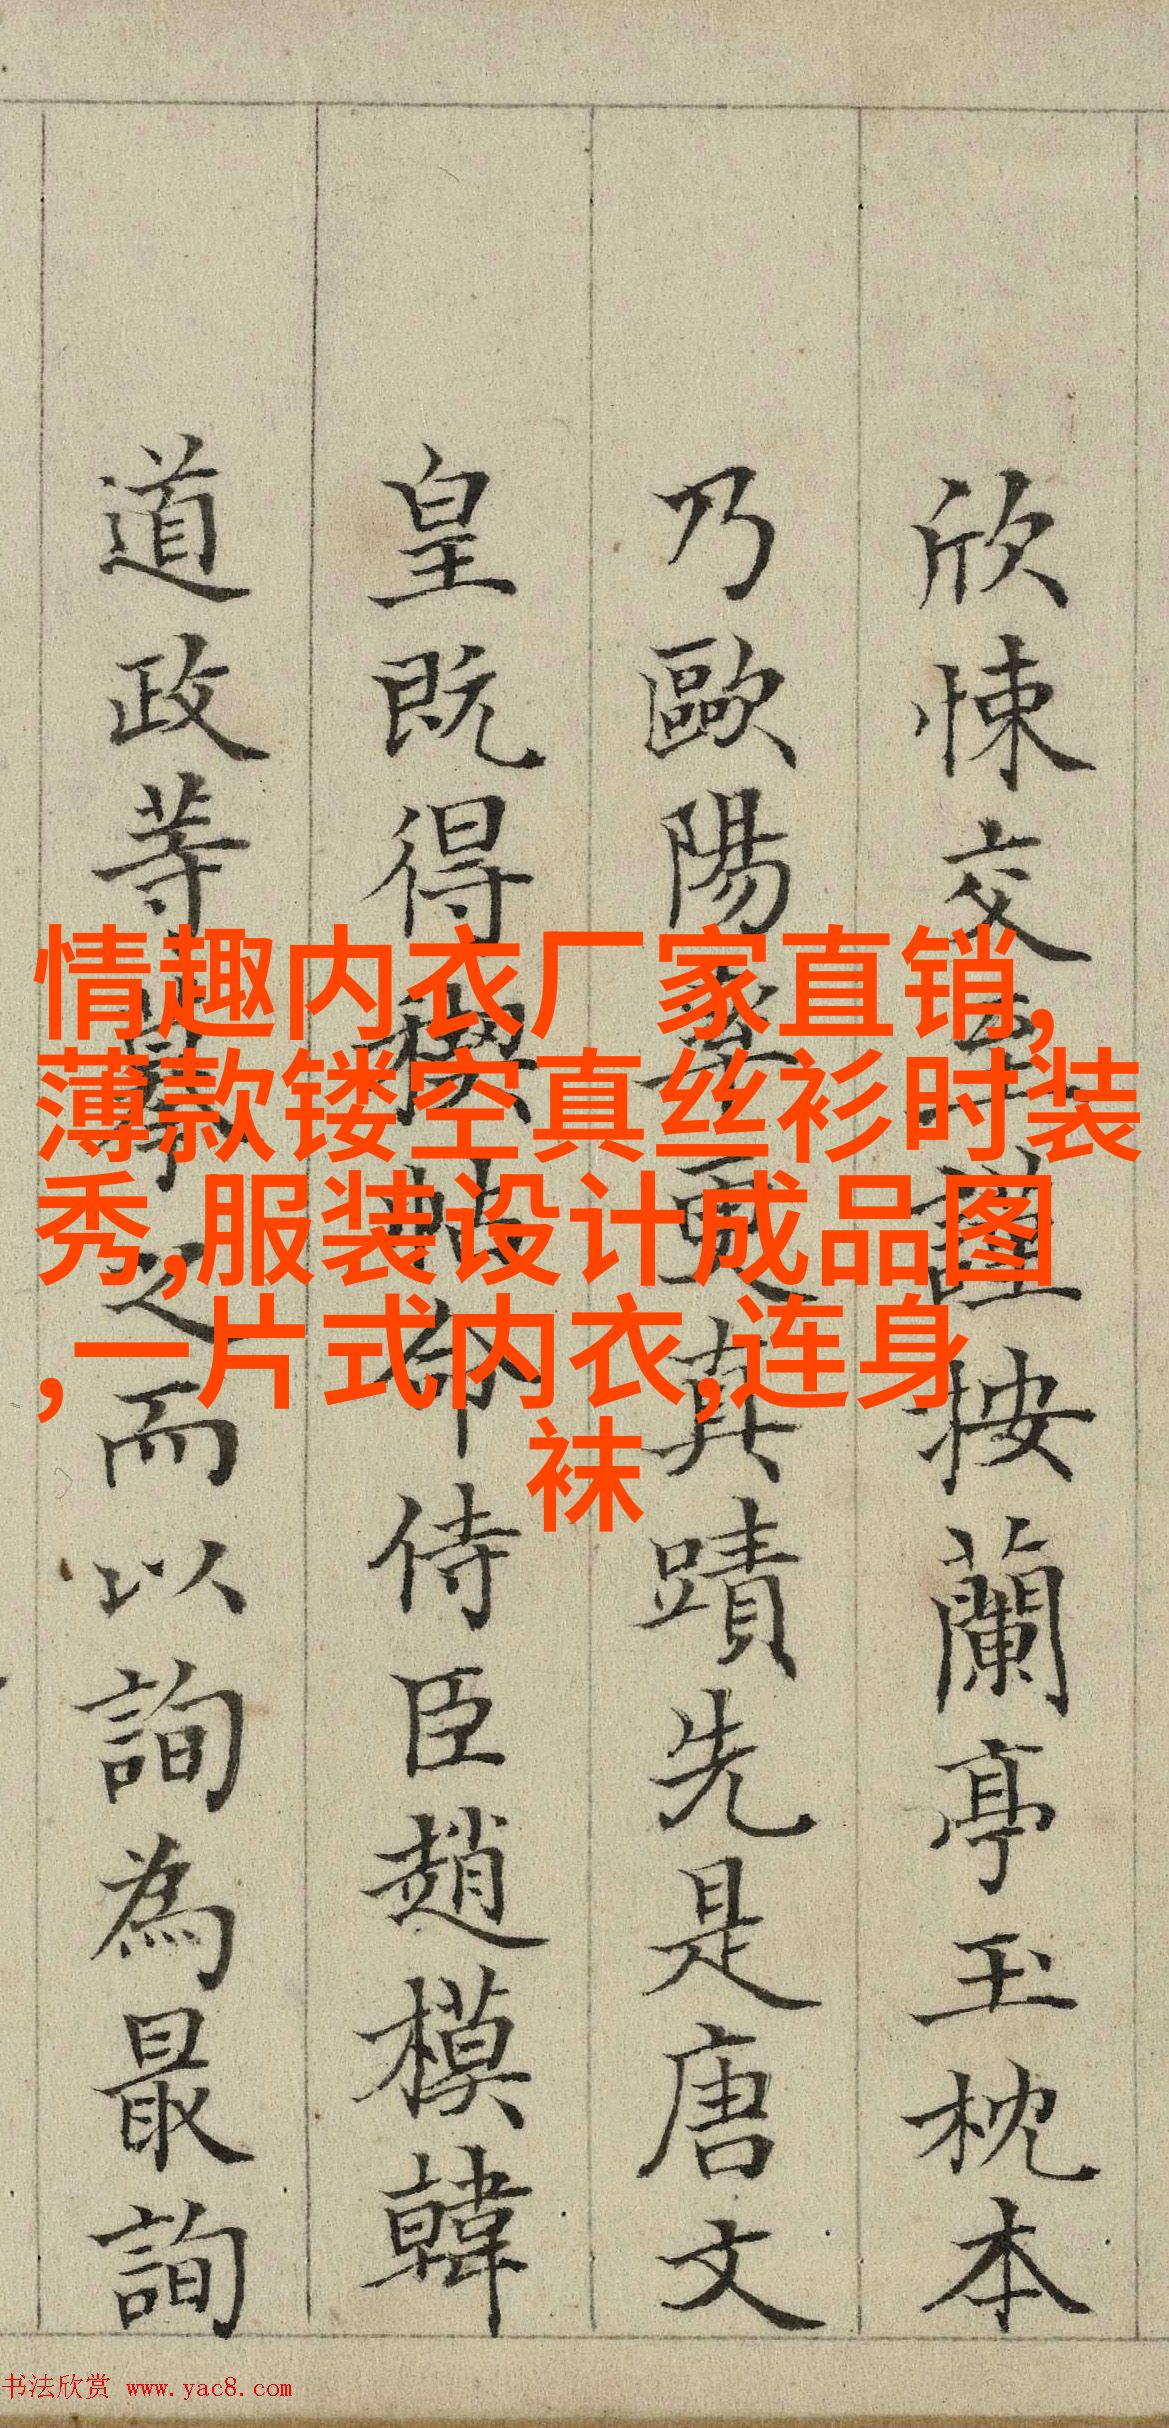 欣悚交謹按蘭亭玉枕本
乃歐陽率更真蹟先是唐文
皇既得稧帖命侍臣趙模韓
道政等之而以詢為最詢
情趣内衣厂家直销,
薄款镂空真丝衫时装
秀,服装设计成品图
,一片式内衣,连身
袜
书法欣赏 www.yac8.com